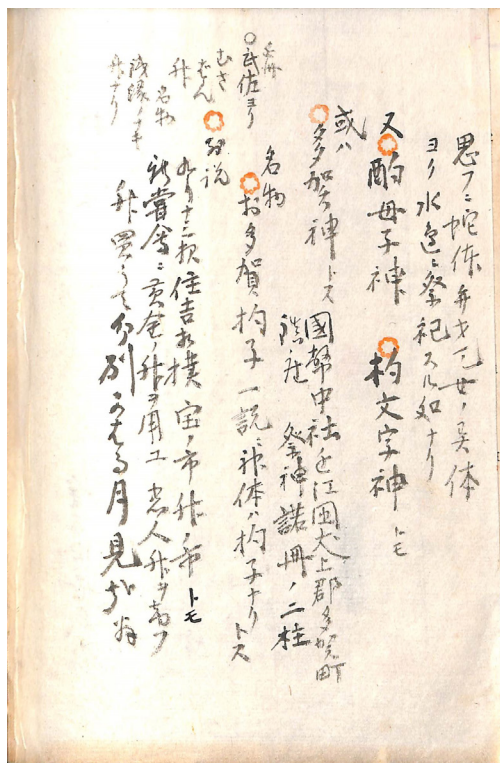 思フニ蛇体弁才天女ノ異体
ヨク水辺ニ祭祀スル如ナリ
又酌母子神 杓文字神トモ
或ハ
多賀神トス 國幣中社近江国犬上郡多賀町
鎮座 祭神諾冊ノ二柱
名物
お多賀杓子 一説ニ神体ハ杓子ナリトス
武佐ヨリ
むさ
ずん
別説
九月十三夜住吉相撲 宝ノ市升ノ市トモ
新嘗會ニ黄金ノ升ヲ用ユ 老人升ヲ
名物
升
升買うて分別かはる月見哉